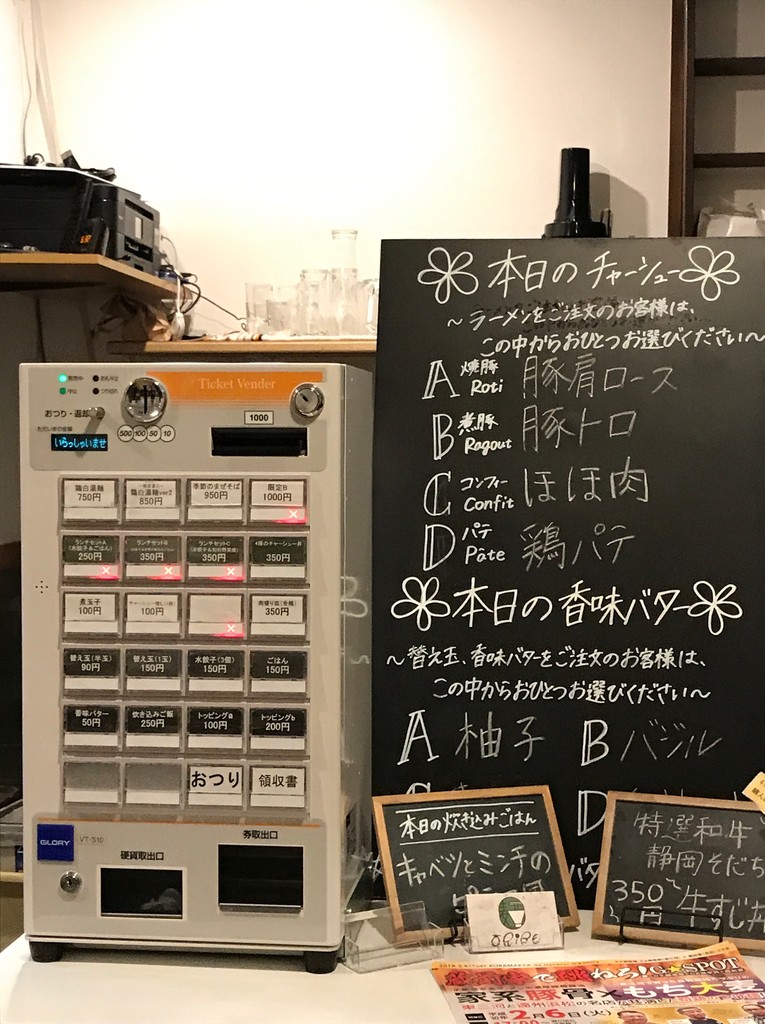 Ticket Vender
おつり・返却
1000
500 100 50 10
いらっしゃいませ
鶏白湯麺
750円
鶏白湯麺ver2
850円
季節のまぜそば
950円
限定B
1000円
ランチセットA
250円
ランチセットB
350円
ランチセットC
350円
350円
煮玉子
100円
100円
350円
替え玉(半玉)
90円
替え玉(1玉)
150円
水餃子(3個)
150円
ごはん
150円
香味バター
50円
炊き込みご飯
250円
トッピングa
100円
トッピングb
200円
おつり
領収書
GLORY
VT-S10
硬貨取出口
券取出口
本日のチャーシュー
~ラーメンをご注文のお客様は、
この中からおひとつお選びください~
A 焼豚 Roti 豚肩ロース
B 煮豚 Ragout 豚トロ
C コンフィー Confit ほほ肉
D パテ Pâte 鶏パテ
本日の香味バター
~替え玉、香味バターをご注文のお客様は、
この中からおひとつお選びください~
A 柚子 B バジル
D
本日の炊き込みごはん
キャベツとミンチの
特選和牛
静岡そだち
350円 牛すじ丼
で跳ねろ! G★SPOT
家系豚骨×もち大麦
2月6日(火)